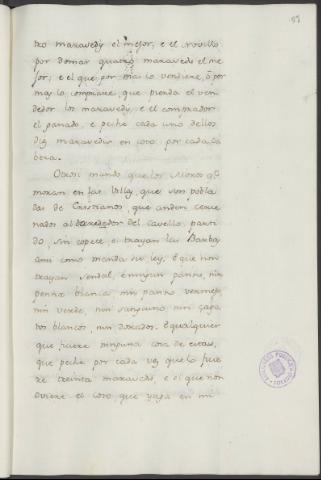 tro maravedis el mejor, e el novillo
por domar quatro maravedis el me
jor; e el que por mas lo vendiere, ó por
mas lo comprare, que pierda el ven
dedor los maravedis, e el comprador
el ganado, e peche cada uno dellos
diez maravedis en coto por cada ca
beza.
Otrosi mando que los Moros qe
moran en las Villas, que son pobla
das de Cristianos que anden cerce
nados al derredor del cavello, parti
do, sin copete e trayan las Barbas
ansi como manda su ley, e que non
trayan sendal, e ningun panno, nin
penna blanca nin panno vermejo
nin verde, nin sanguino nin zapa
tos blancos, nin dorados. E qualquier
que ficiere ninguna cosa de estas,
que peche por cada vez que lo ficie
re treinta maravedis, e el que non
oviere el coto que yaga en mi